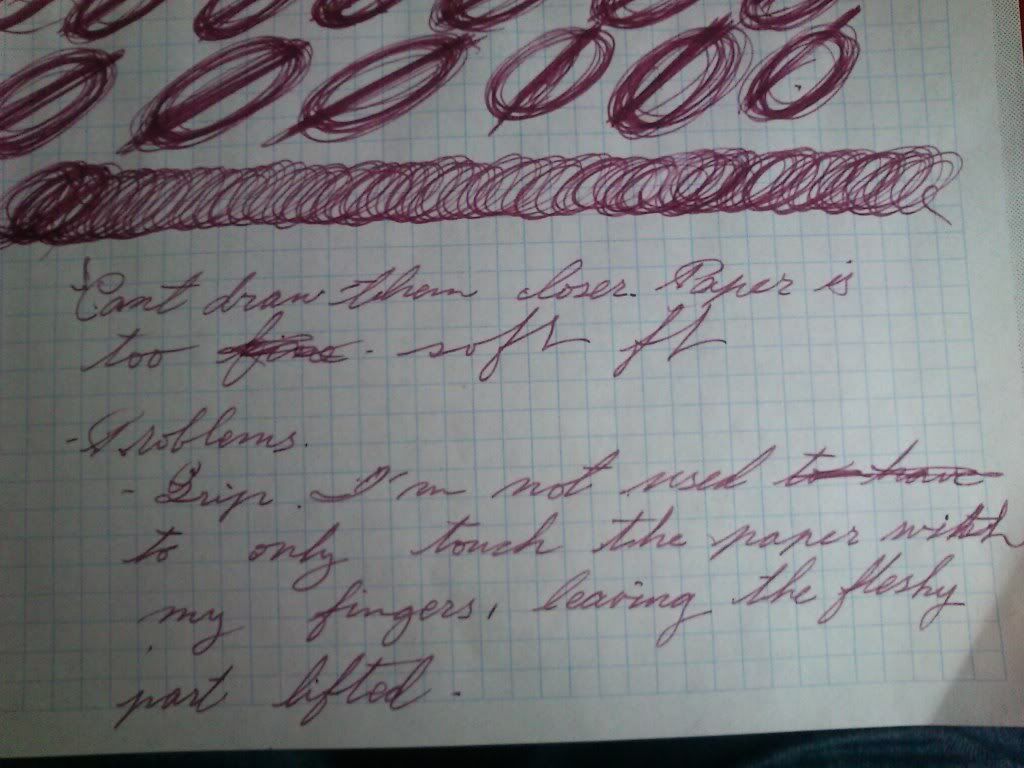 Cant draw them closer. Paper is
too fine - soft ft
- Problems.
- Grip. I'm not used to have
to only touch the paper with
my fingers, leaving the fleshy
part lifted.